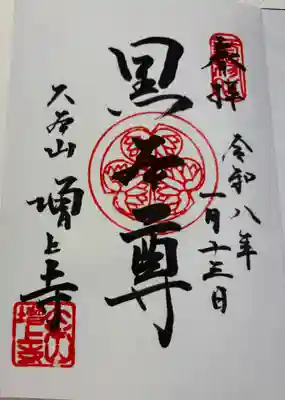 奉拝
令和八年
一月十三日
黒本尊
大本山
増上寺